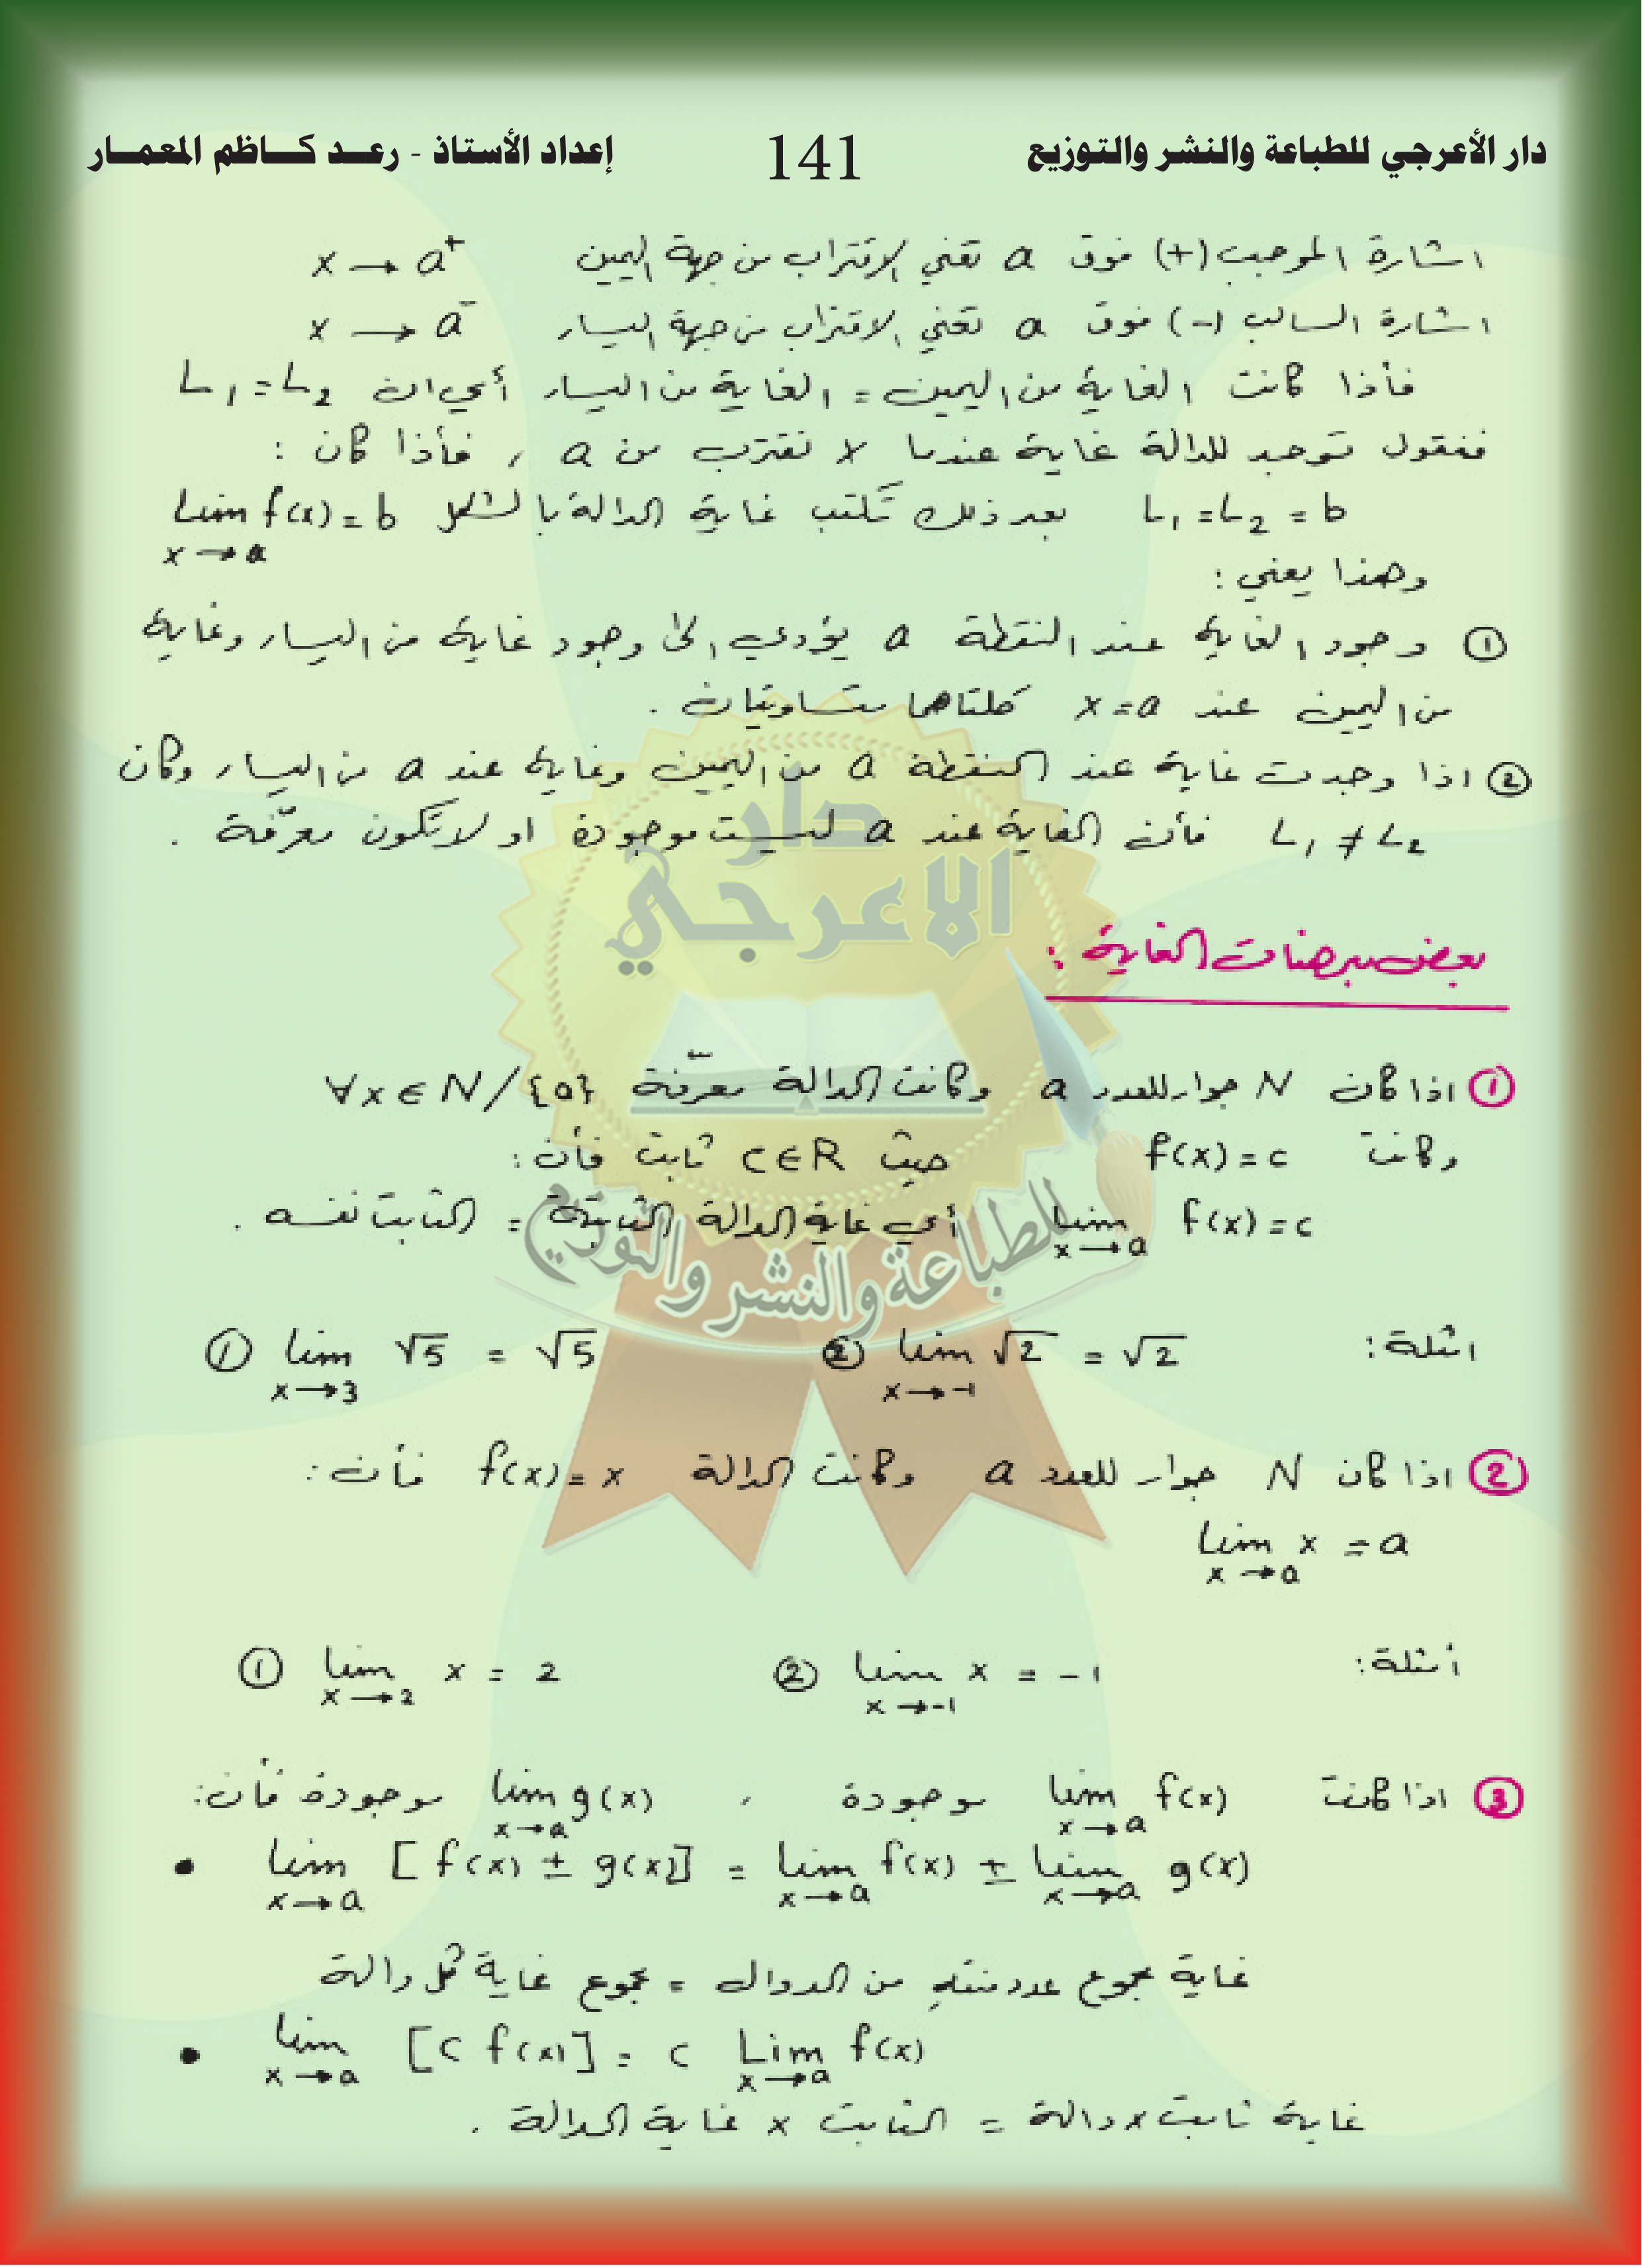 دار الأعرجي للطباعة والنشر والتوزيع 141 إعداد الأستاذ - رعد كاظم المعمار
اشارة الموجب (+) فوق a تعني الاقتراب من جهة اليمين x → a⁺
اشارة السالب (-) فوق a تعني الاقتراب من جهة اليسار x → a⁻
فأذا كانت الغاية من اليمين = الغاية من اليسار أي ان L₁ = L₂
فنقول توجد للدالة غاية عندما x تقترب من a ، فأذا كان :
L₁ = L₂ = b بعد ذلك تُكتب غاية الدالة بالشكل Lim f(x) = b
x → a
وهذا يعني :
① وجود الغاية عند النقطة a يؤدي الى وجود غاية من اليسار وغاية
من اليمين عند x = a كلتاهما متساويتان .
② اذا وجدت غاية عند النقطة a من اليمين وغاية عند a من اليسار وكان
L₁ ≠ L₂ فأن الغاية عند a ليست موجودة او لا تكون معرّفة .
دار
الاعرجي
بعض مبرهنات الغاية :
① اذا كان N جوار للعدد a وكانت الدالة معرّفة ∀x ∈ N/{a}
وكانت f(x) = c حيث c ∈ R ثابت فأن :
lim f(x) = c أي غاية الدالة الثابتة = الثابت نفسه .
x → a
للطباعة والنشر والتوزيع
امثلة : ① lim √5 = √5 ② lim √2 = √2
x → 3 x → -1
② اذا كان N جوار للعدد a وكانت الدالة f(x) = x فأن :
lim x = a
x → a
أمثلة : ① lim x = 2 ② lim x = -1
x → 2 x → -1
③ اذا كانت lim f(x) موجودة ، lim g(x) موجودة فأن :
x → a x → a
• lim [f(x) ± g(x)] = lim f(x) ± lim g(x)
x → a x → a x → a
غاية مجموع عدد منتهِ من الدوال = مجموع غاية كل دالة
• lim [c f(x)] = c Lim f(x)
x → a x → a
غاية ثابت × دالة = الثابت × غاية الدالة .